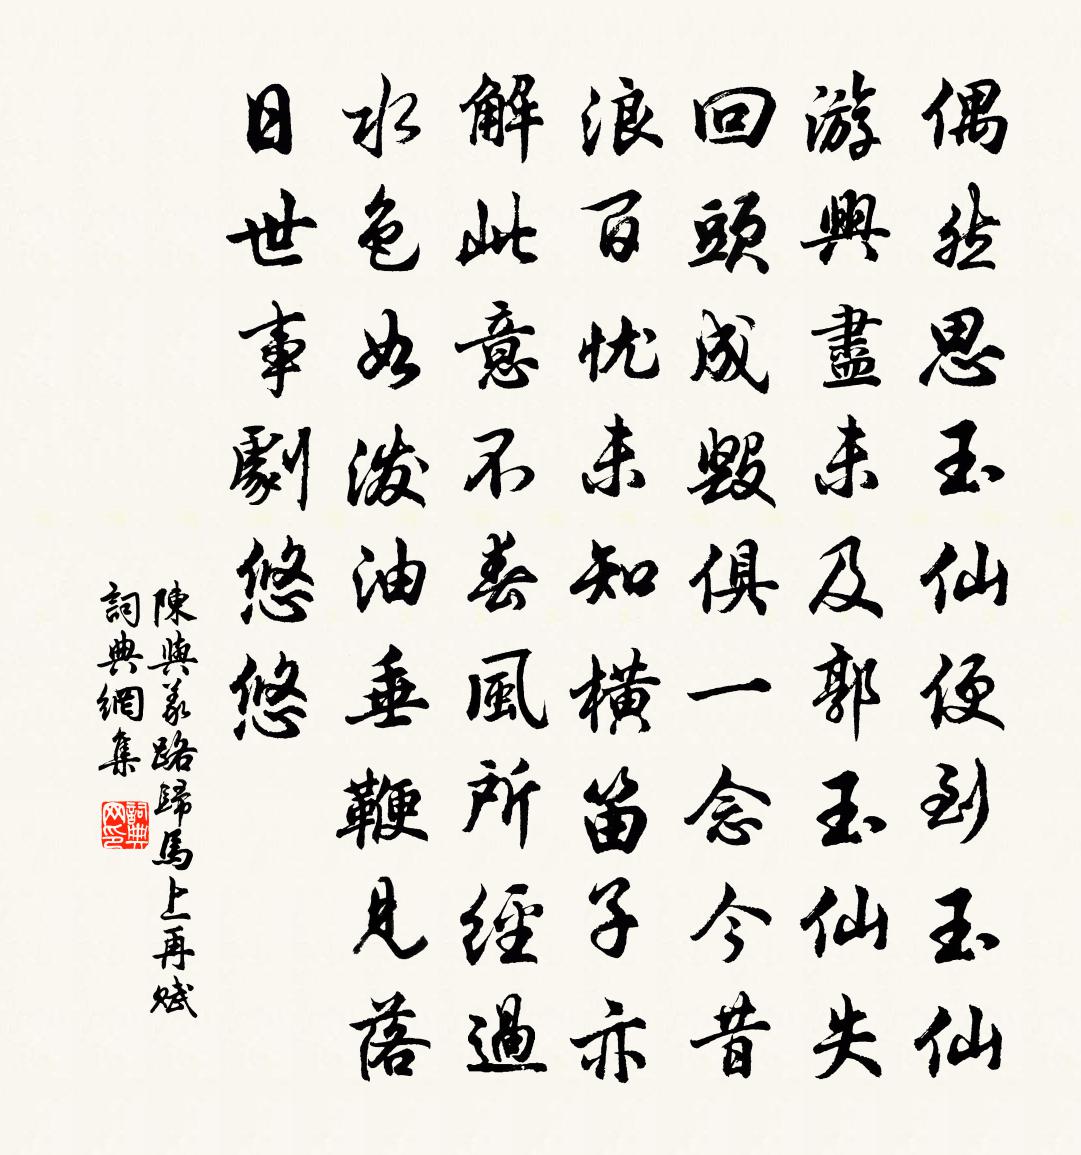 偶然思玉仙便到玉仙
游興盡未及郭玉仙失
回頭成毀俱一念今昔
浪百忧未知橫笛子亦
解此意不春風所經過
水色如潑油垂鞭見落
日世事劇悠悠
陳與義路歸馬上再賦
詞典網集
詞典网印